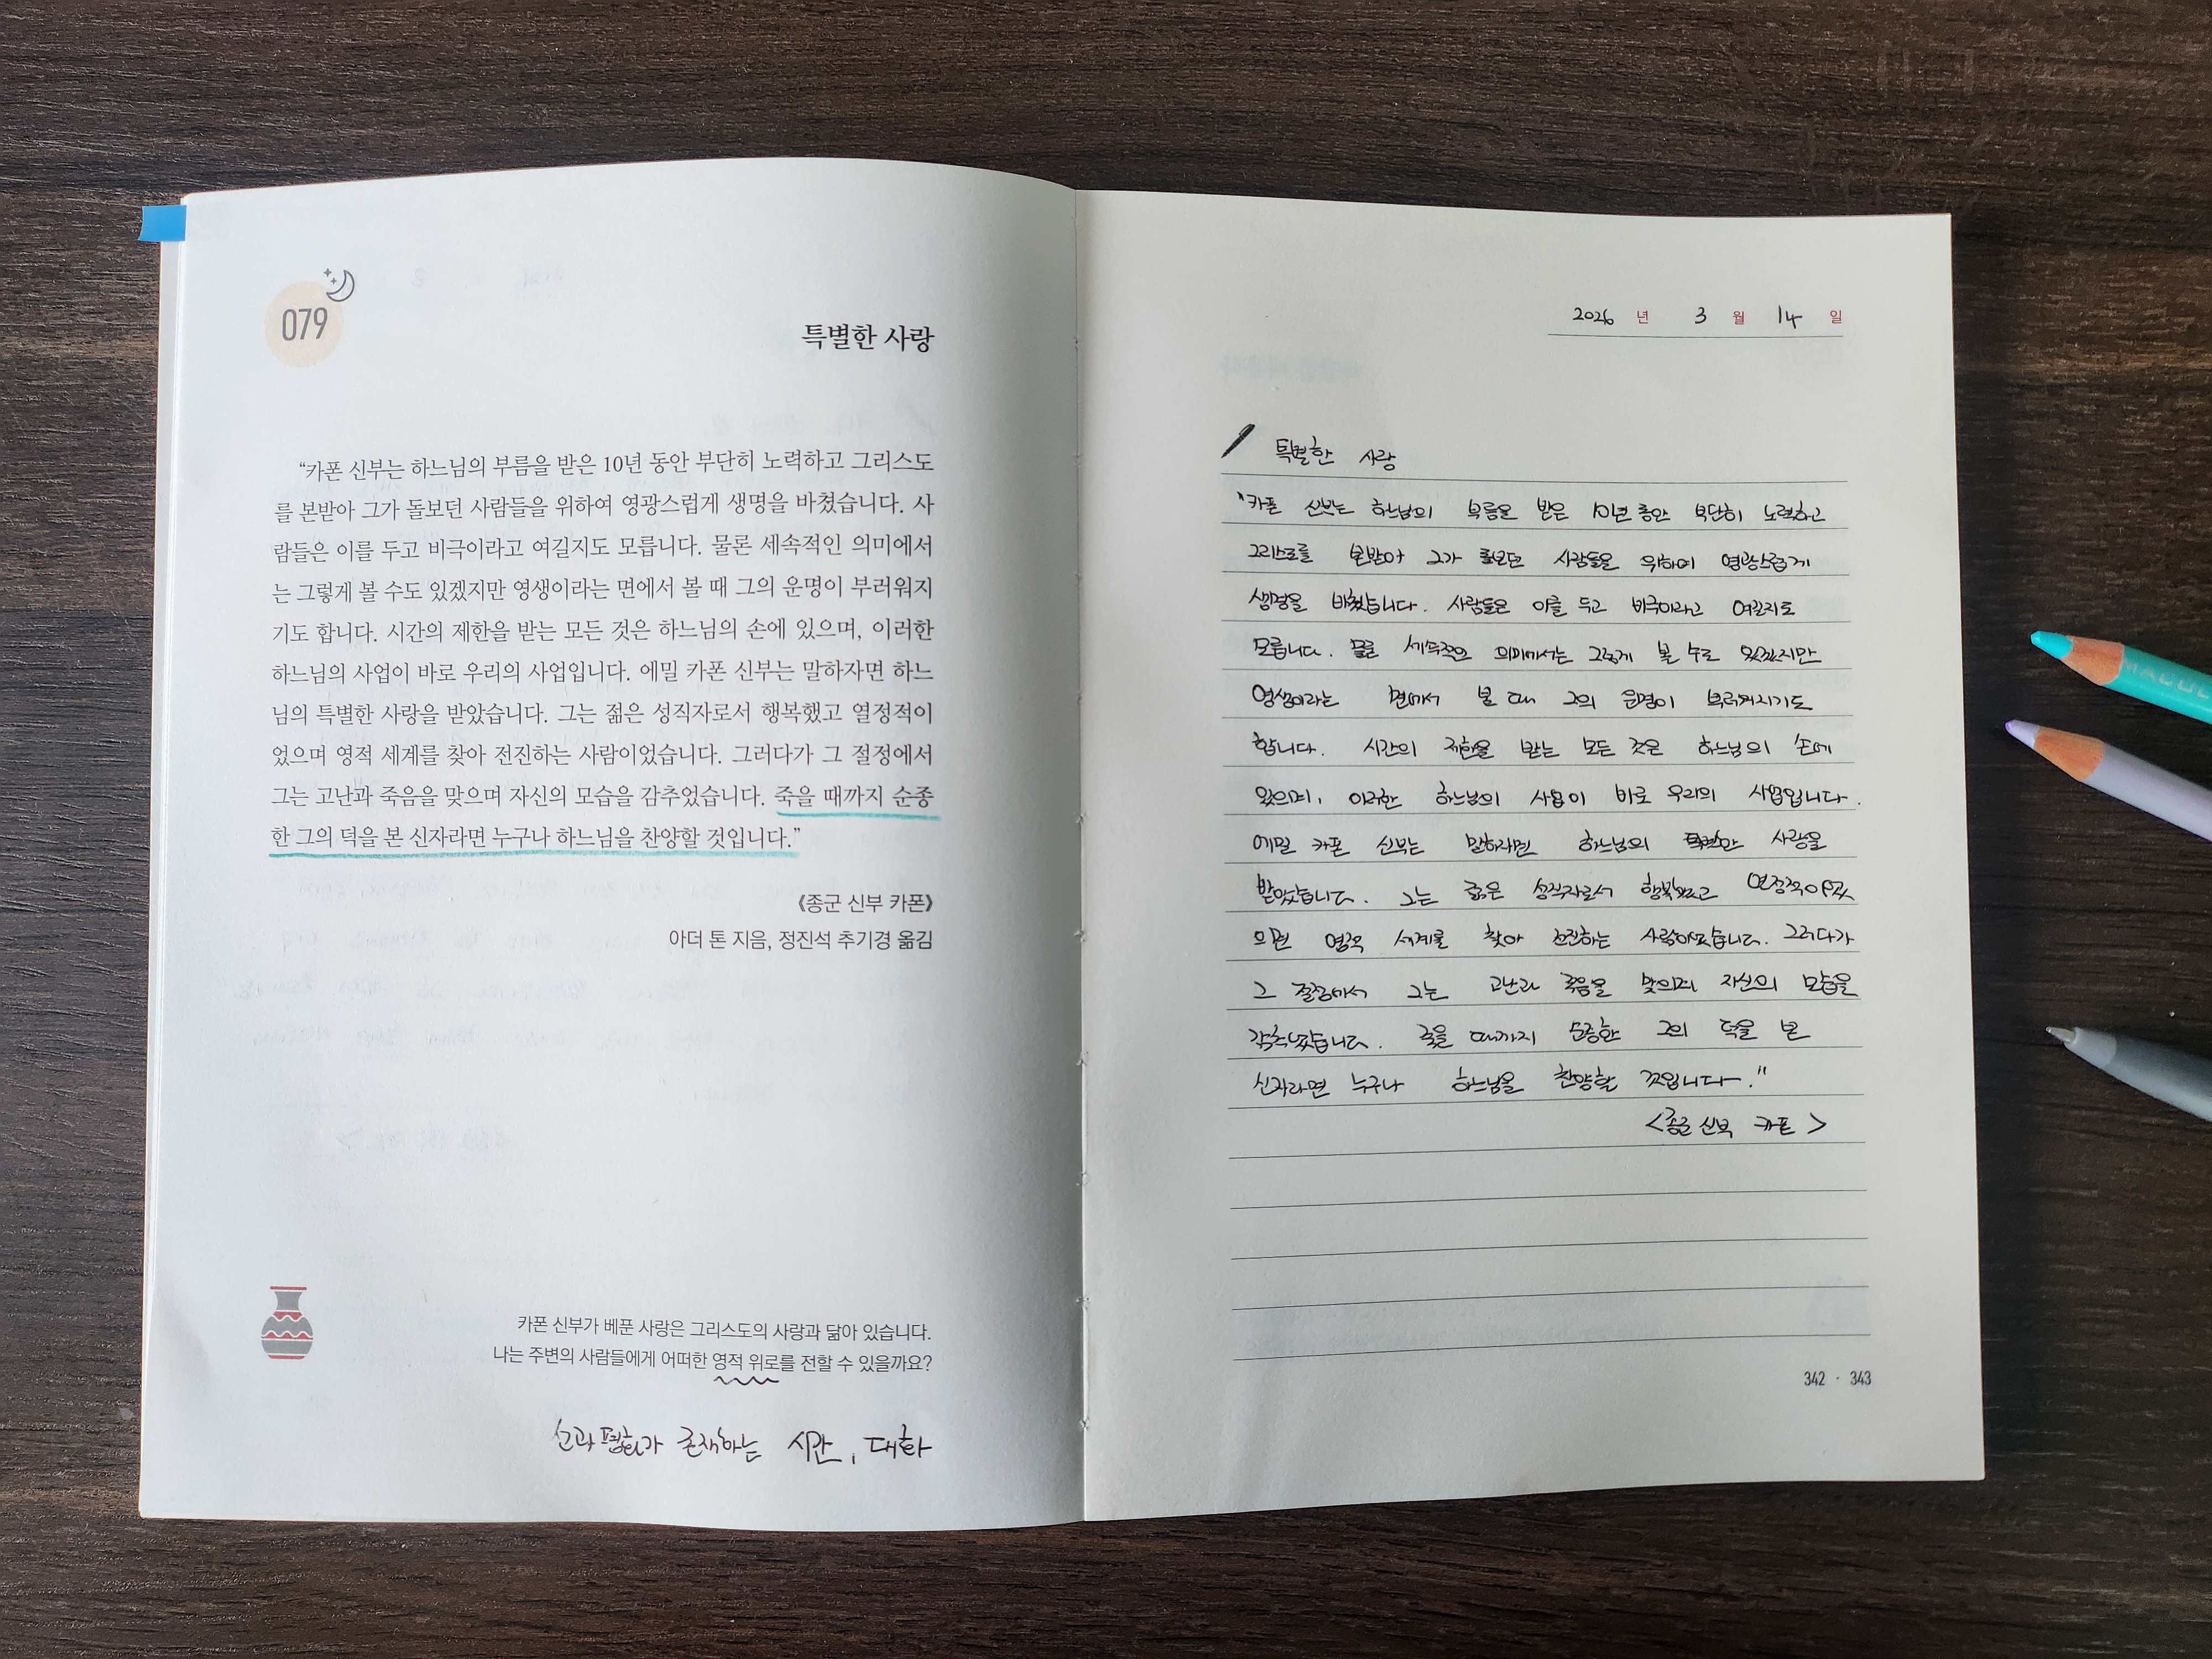 079
특별한 사랑
“카폰 신부는 하느님의 부름을 받은 10년 동안 부단히 노력하고 그리스도
를 본받아 그가 돌보던 사람들을 위하여 영광스럽게 생명을 바쳤습니다. 사
람들은 이를 두고 비극이라고 여길지도 모릅니다. 물론 세속적인 의미에서
는 그렇게 볼 수도 있겠지만 영생이라는 면에서 볼 때 그의 운명이 부러워지
기도 합니다. 시간의 제한을 받는 모든 것은 하느님의 손에 있으며, 이러한
하느님의 사업이 바로 우리의 사업입니다. 에밀 카폰 신부는 말하자면 하느
님의 특별한 사랑을 받았습니다. 그는 젊은 성직자로서 행복했고 열정적이
었으며 영적 세계를 찾아 전진하는 사람이었습니다. 그러다가 그 절정에서
그는 고난과 죽음을 맞으며 자신의 모습을 감추었습니다. 죽을 때까지 순종
한 그의 덕을 본 신자라면 누구나 하느님을 찬양할 것입니다.”
《종군 신부 카폰》
아더 톤 지음, 정진석 추기경 옮김
카폰 신부가 베푼 사랑은 그리스도의 사랑과 닮아 있습니다.
나는 주변의 사람들에게 어떠한 영적 위로를 전할 수 있을까요?
평화가 존재하는 시간, 대화
2026 년 3 월 14 일
특별한 사랑
"카폰 신부는 하느님의 부름을 받은 10년 동안 부단히 노력하고
그리스도를 본받아 그가 돌보던 사람들을 위하여 영광스럽게
생명을 바쳤습니다. 사람들은 이를 두고 비극이라고 여길지도
모릅니다. 물론 세속적인 의미에서는 그렇게 볼 수도 있겠지만
영생이라는 면에서 볼 때 그의 운명이 부러워지기도
합니다. 시간의 제한을 받는 모든 것은 하느님의 손에
있으며, 이러한 하느님의 사업이 바로 우리의 사업입니다.
에밀 카폰 신부는 말하자면 하느님의 특별한 사랑을
받았습니다. 그는 젊은 성직자로서 행복했고 열정적이었
으면 영적 세계를 찾아 전진하는 사람이었습니다. 그러다가
그 절정에서 그는 고난과 죽음을 맞으며 자신의 모습을
감추었습니다. 죽을 때까지 순종한 그의 덕을 본
신자라면 누구나 하느님을 찬양할 것입니다."
<종군 신부 카폰>
342 · 343